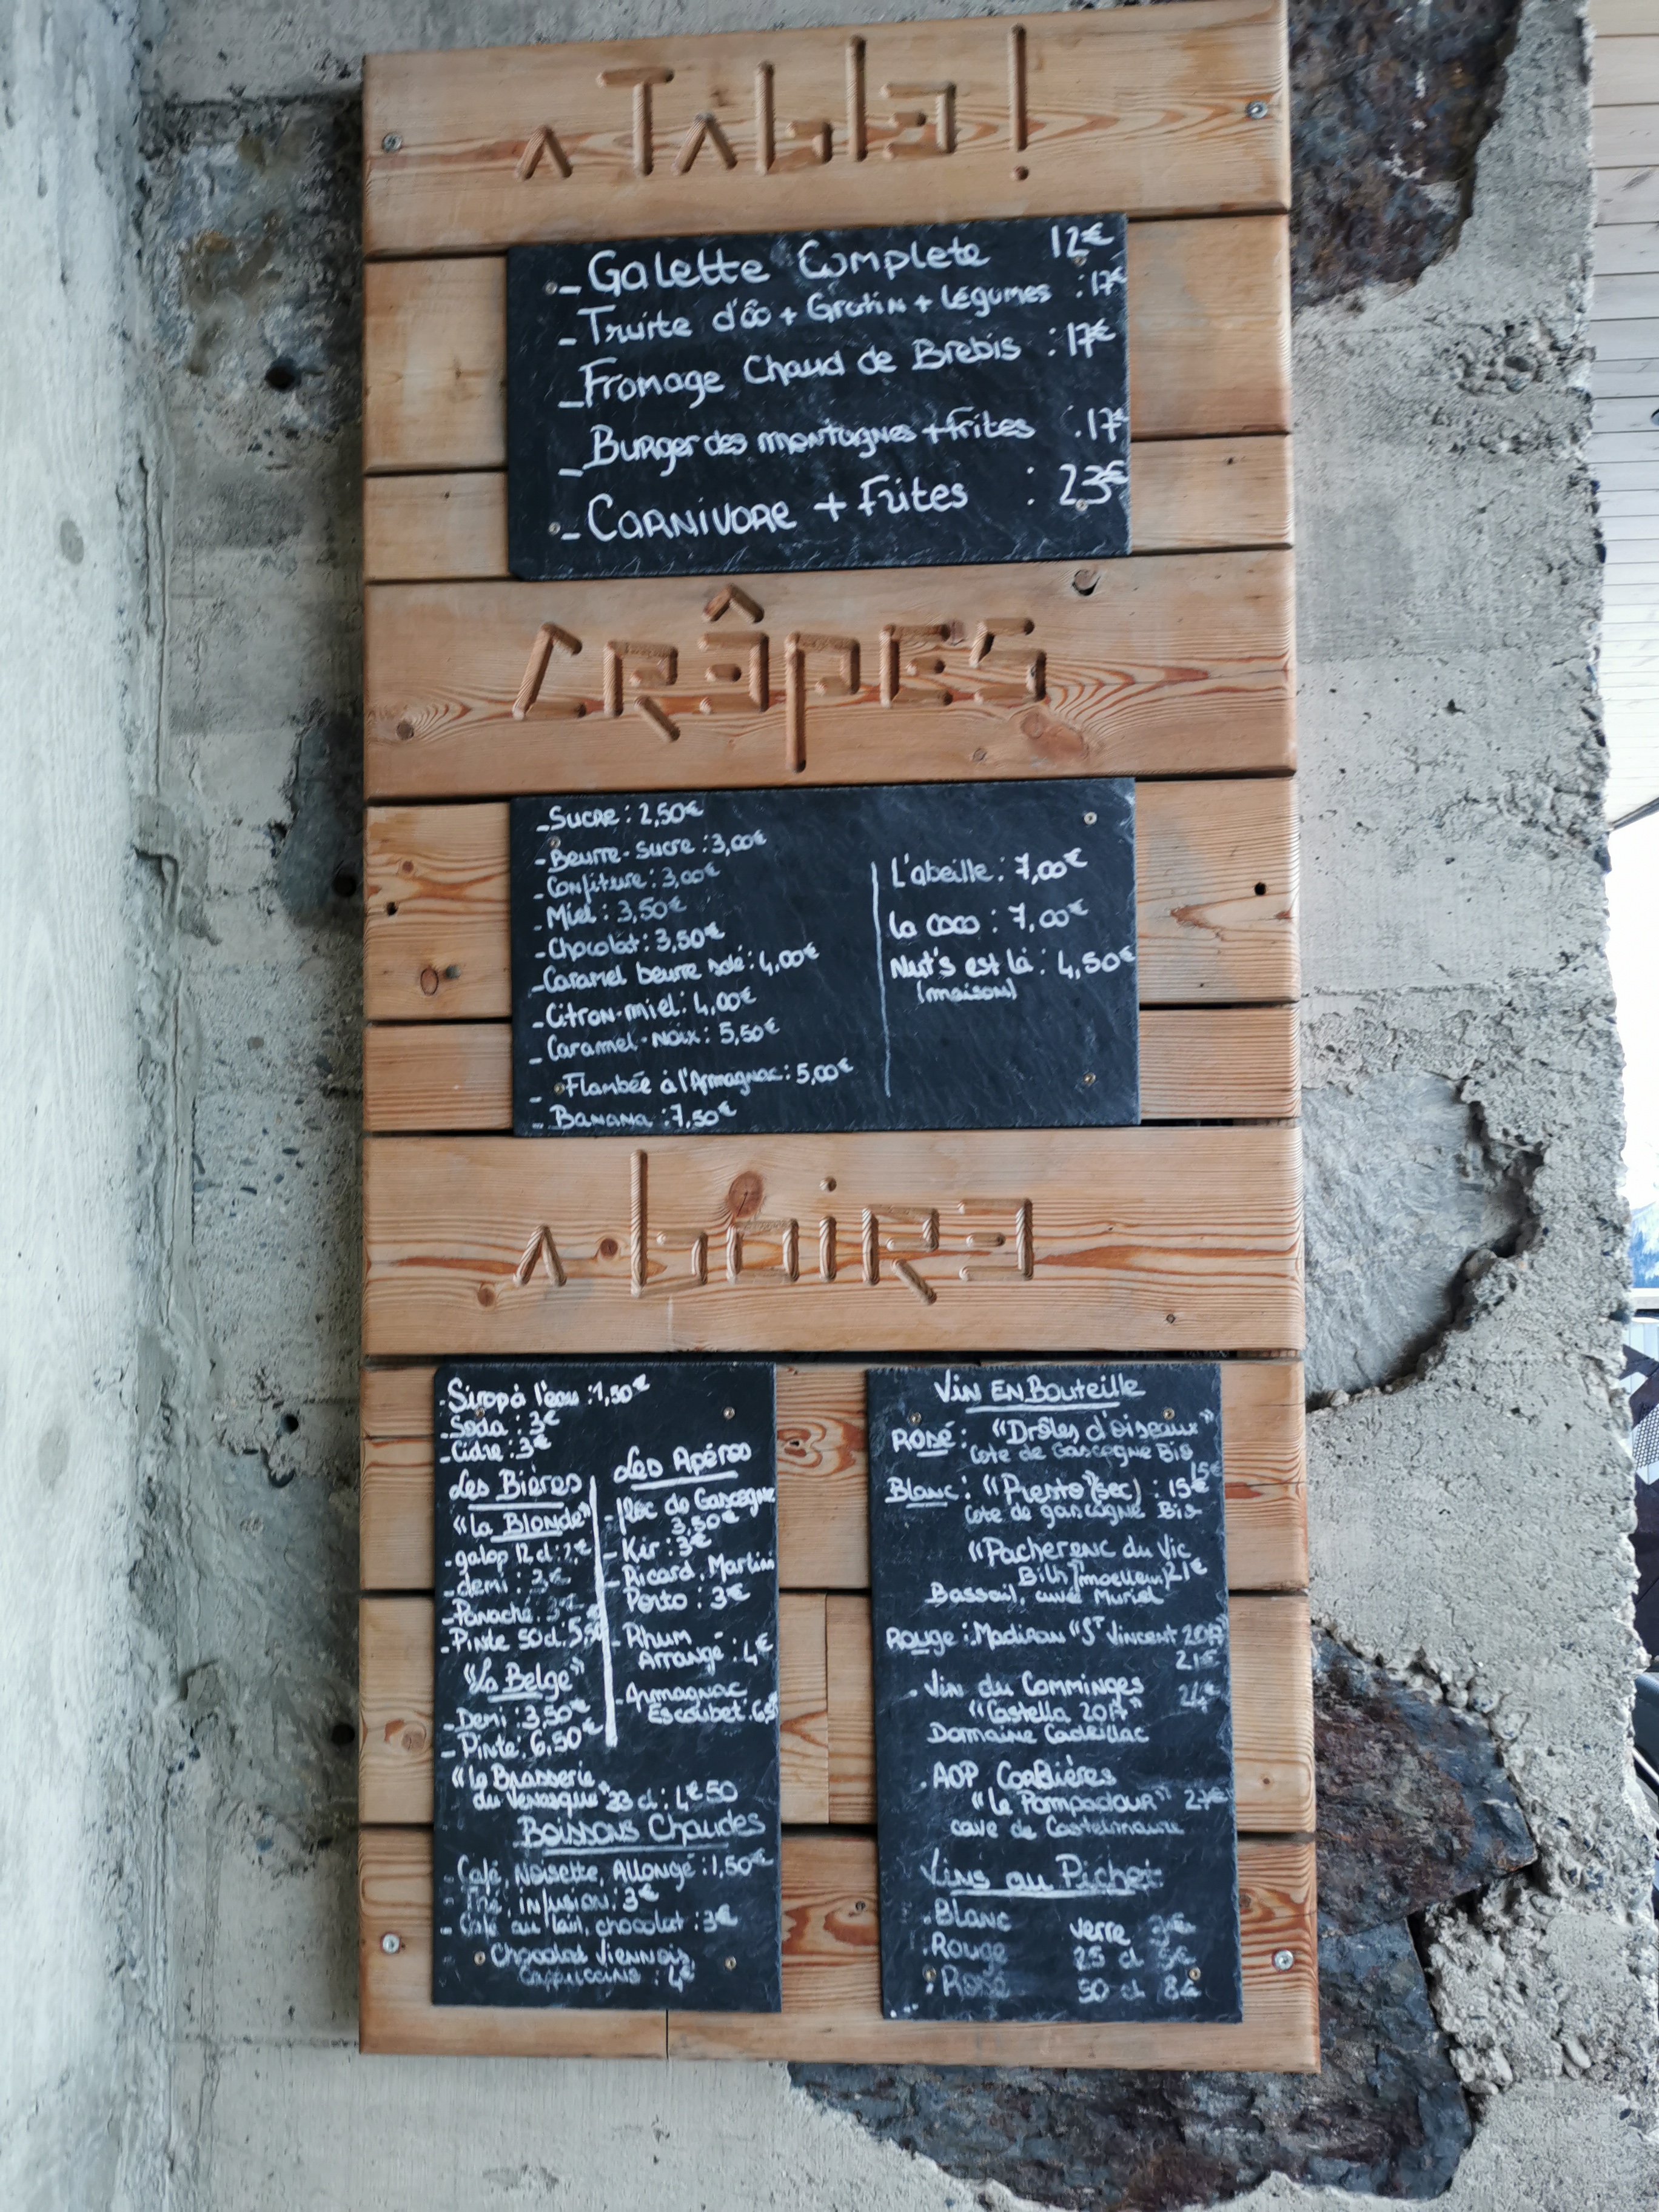 A TAble!
- Galette Complete 12€
- Truite d'ôo + Gratin + Légumes : 17€
- Fromage Chaud de Brebis : 17€
- Burger des montagnes + frites : 17€
- CARNIVORE + Frites : 23€
CRêpEs
- Sucre : 2,50€
- Beurre-sucre : 3,00€
- Confiture : 3,00€
- Miel : 3,50€
- Chocolat : 3,50€
- Caramel beurre salé : 4,00€
- Citron-miel : 4,00€
- Caramel-Noix : 5,50€
- Flambée à l'Armagnac : 5,00€
- Banana : 7,50€
L'abeille : 7,00€
la coco : 7,00€
Nut's est là : 4,50€
(maison)
A boire
- Sirop à l'eau : 1,50€
- Soda : 3€
- Cidre : 3€
Les Bières
"la Blonde"
- galop 12 cl : 2€
- demi : 3€
- Panaché : 3€
- Pinte 50 cl : 5,50
"La Belge"
- Demi : 3,50€
- Pinte : 6,50€
"la Brasserie
du Venasque" 33 cl : 4€50
Les Apéros
- floc de Gascogne
3,50€
- Kir : 3€
- Ricard, Martini
Porto : 3€
- Rhum
Arrangé : 4€
- Armagnac
Escoubet :
Boissons Chaudes
- Café, Noisette, Allongé : 1,50€
- Thé, infusion : 3€
- Café au lait, chocolat : 3€
- Chocolat Viennois
Cappuccino : 4€
Vin En Bouteille
Rosé : "Drôles d'oiseaux"
Cote de Gascogne Bio
15€
Blanc : "Presto" (sec) : 15€
Cote de gascogne Bio
"Pacherenc du Vic
Bilh" (moelleux) 21€
Bassail, cuvé Muriel
Rouge : Madiran "St Vincent 2017"
21€
. Vin du Comminges
"Castella 2017"
Domaine Cadeillac
. AOP Corbières
"Le Pompadour" 27€
cave de Castelmaure
Vins au Pichet
. Blanc verre
. Rouge 25 cl 5€
. Rosé 50 cl 8€